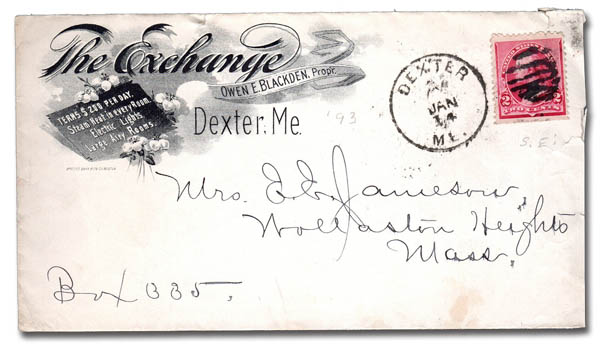 The Exchange
OWEN E. BLACKDEN, Propr.
TERMS $2.00 PER DAY.
Steam Heat in every Room.
Electric Lights
Large Airy Rooms
Dexter, Me.
'93
DEXTER
AM
JAN
14
ME.
2 2
S.E.
Mrs. E. E. Jameson
Wollaston Heights
Mass.
Box 335.